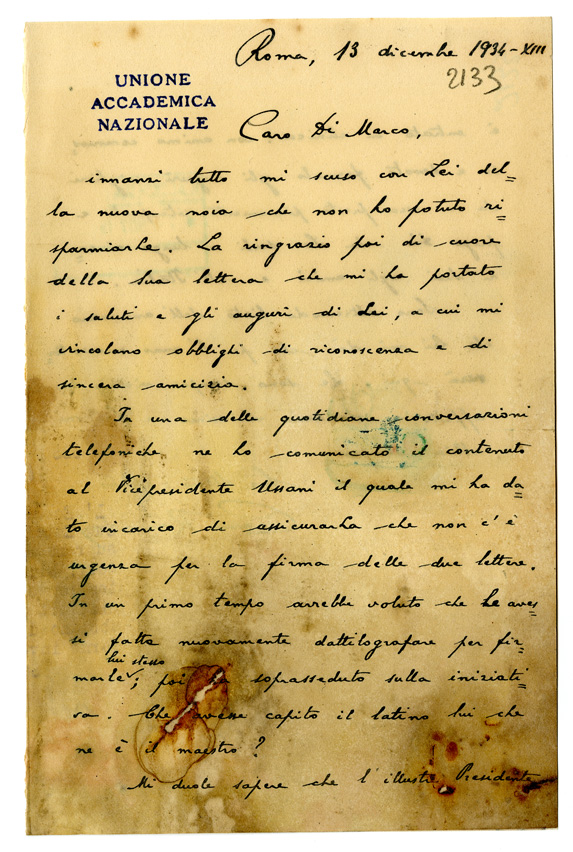 Roma, 13 dicembre 1934-XIII
2133
UNIONE
ACCADEMICA
NAZIONALE
Caro Di Marco,
innanzi tutto mi scuso con Lei del=
la nuova noia che non ho potuto ri=
sparmiarLe. La ringrazio poi di cuore
della Sua lettera che mi ha portato
i saluti e gli auguri di Lei, a cui mi
vincolano obblighi di riconoscenza e di
sincera amicizia.
In una delle quotidiane conversazioni
telefoniche ne ho comunicato il contenuto
al Vicepresidente Ussani il quale mi ha da=
to incarico di assicurarLa che non c'è
urgenza per la firma delle due lettere.
In un primo tempo avrebbe voluto che le aves=
si fatte nuovamente dattilografare per fir=
lui stesso
marle; poi ha soprasseduto sulla iniziati=
va. Che avesse capito il latino lui che
ne è il maestro?
Mi duole sapere che l'illustre Presidente